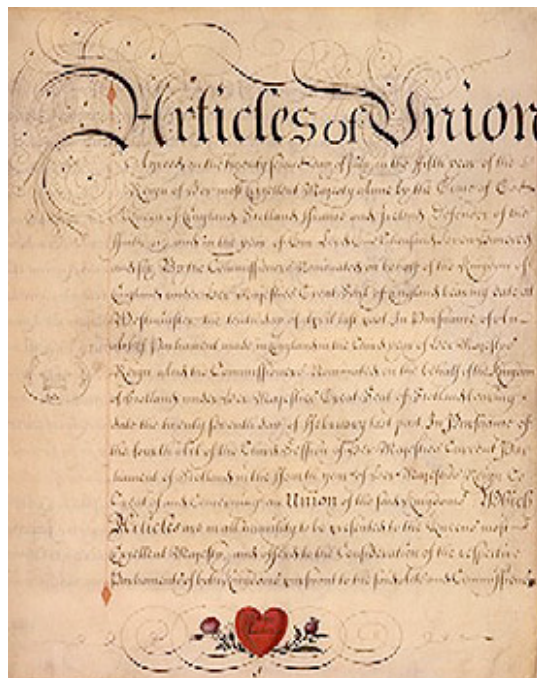 Articles of Union
Agreed on the twenty second day of July, in the fifth year of the
Reign of Her most Excellent Majesty Anne by the Grace of God
Queen of England Scotland France and Ireland Defender of the
Faith &c. and in the year of Our Lord One thousand seven hundred
and six By the Commissioners Nominated on behalf of the Kingdom of
England under Her Majesties Great Seal of England bearing date at
Westminster the tenth day of April last past In Pursuance of an
Act of Parliament made in England in the third year of Her Majesties
Reign and the Commissioners Nominated on the behalf of the Kingdom
of Scotland under Her Majesties Great Seal of Scotland bearing
date the twenty seventh day of February last past In Pursuance of
the fourth Act of the third Session of Her Majesties Current Par
liament of Scotland in the fourth year of Her Majesties Reign to
Treat of and Concerning an Union of the said Kingdoms Which
Articles are in all humility to be presented to the Queens most
Excellent Majesty and offered to the Consideration of the respective
Parliaments of both Kingdoms pursuant to the said Acts and Commissions